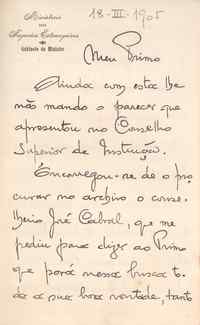 Ministerio
dos
Negocios Estrangeiros
Gabinete do Ministro
18-III-1905
Meu Primo
Ainda com esta lhe
não mando o parecer que
apresentou no Conselho
Superior de Instrucção.
Encarregou-se de o pro
curar no archivo o conse
lheiro José Cabral, que me
pediu para dizer ao Primo
que porá nessa busca to
da a sua boa vontade, tanto